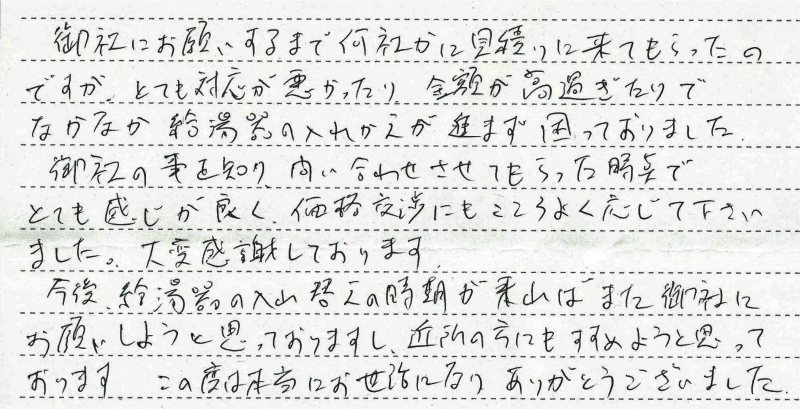 御社にお願いするまで何社かに見積りに来てもらったの
ですが、とても対応が悪かったり、金額が高過ぎたりで
なかなか給湯器の入れかえが進まず困っておりました。
御社の事を知り、問い合わせさせてもらった時点で
とても感じが良く、価格交渉にもこころよく応じて下さい
ました。大変感謝しております。
今後、給湯器の入れ替えの時期が来ればまた御社に
お願いしようと思っておりますし、近所の方にもすすめようと思って
おります。この度は本当にお世話になりありがとうございました。